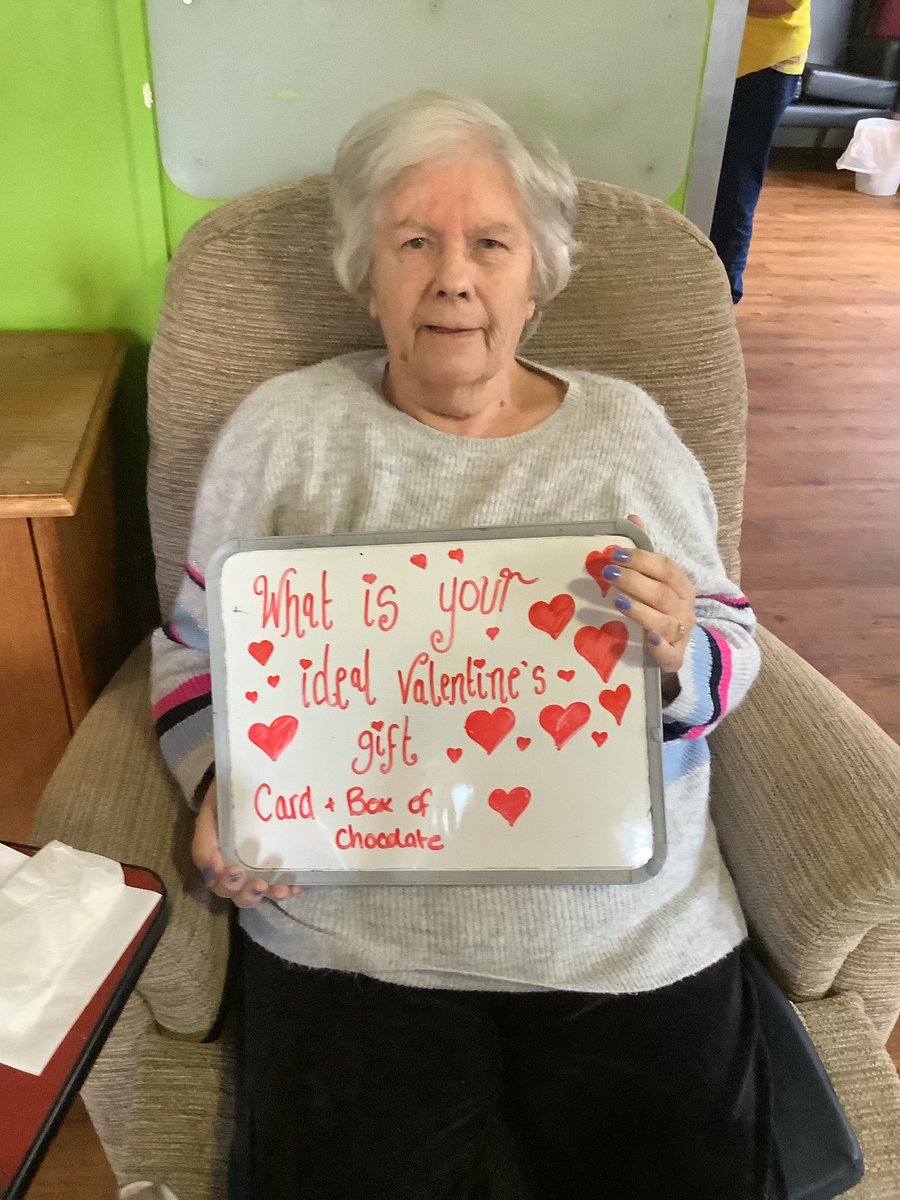 What is your
ideal Valentine's
gift
Card + Box of
Chocolate